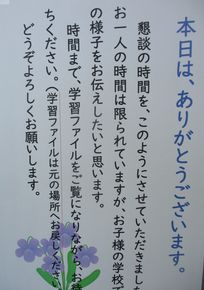 本日は、ありがとうございます。
懇談の時間を、このようにさせていただきました
お一人の時間は限られていますが、お子様の学校で
の様子をお伝えしたいと思います。
時間まで、学習ファイルをご覧になりながら、お待
ちください。（学習ファイルは元の場所へお戻しください
どうぞよろしくお願いします。